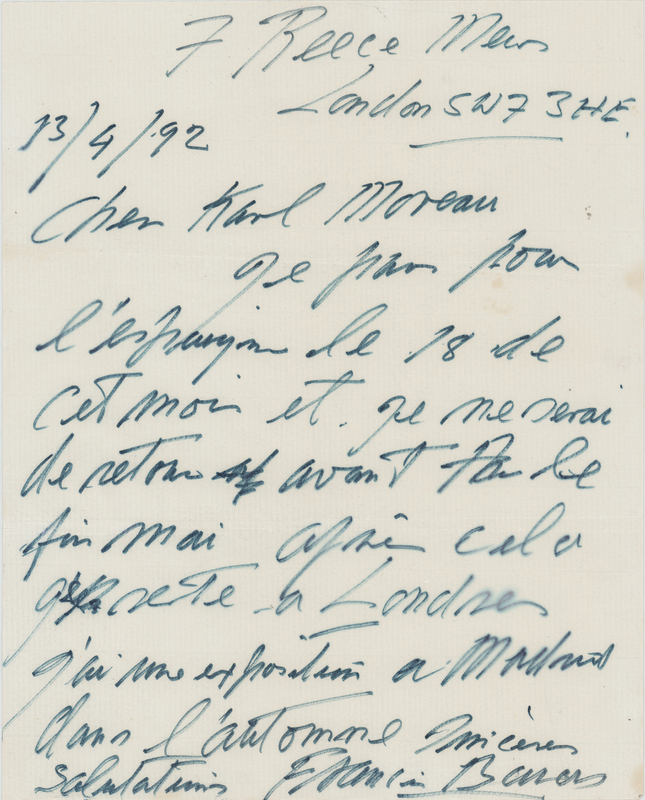 7 Reece Mews
London SW7 3HE.
13/4/92
Cher Karl Moreau
je pars pour
l'espagne le 18 de
cet mois et je ne serai
de retour avant la
fin mai après cela
reste a Londres
j'ai une exposition a Madrid
dans l'automne sincères
salutations Francis Bacon